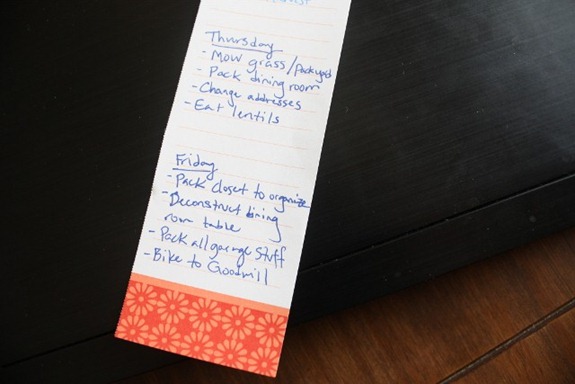 Thursday
- Mow grass/pack yard
- Pack dining room
- Change addresses
- Eat lentils
Friday
- Pack closet to organize
- Deconstruct dining
room table
- Pack all garage stuff
- Bike to Goodwill